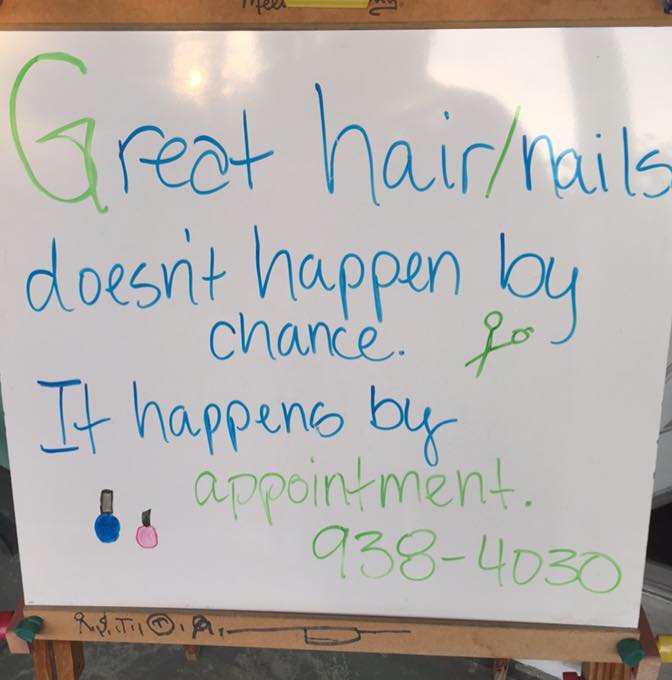 Great hair/nails
doesn't happen by
chance.
It happens by
appointment.
938-4030